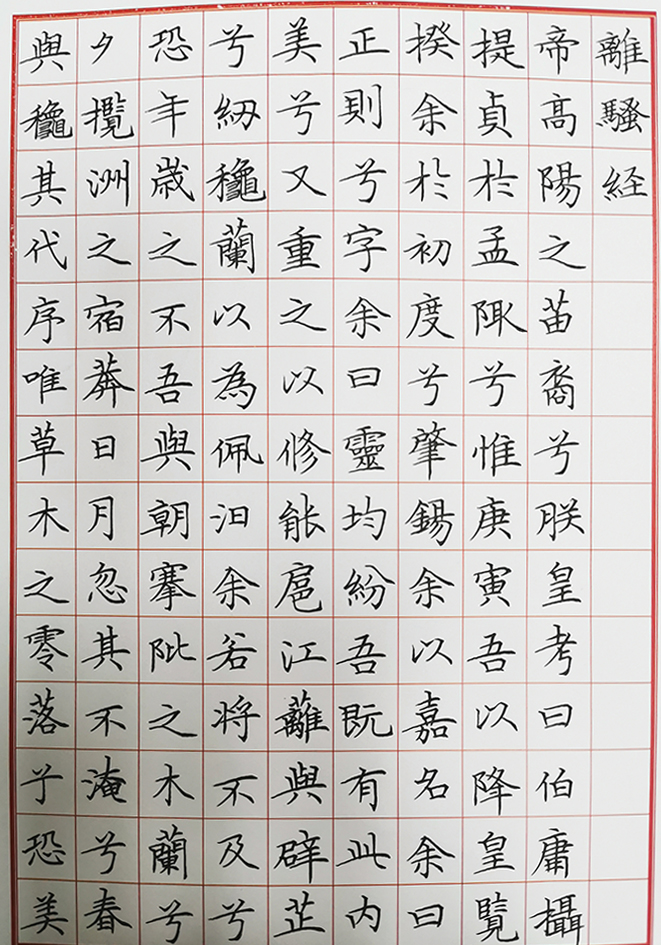 離騷経
帝高陽之苗裔兮朕皇考曰伯庸攝
提貞於孟陬兮惟庚寅吾以降皇覽
揆余於初度兮肇錫余以嘉名余曰
正則兮字余曰靈均紛吾既有此内
美兮又重之以修能扈江蘺與辟芷
兮紉龝蘭以為佩汩余若将不及兮
恐年歳之不吾與朝搴阰之木蘭兮
夕攬洲之宿莽日月忽其不淹兮春
與龝其代序唯草木之零落兮恐美